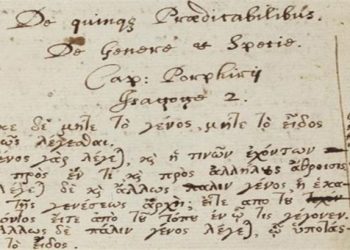 De quinqꝫ Prædicabilibus.
De Genere et Specie.
Cap: Porphirii
Isagoge 2.
κε δὲ μήτε τὸ γένος, μήτε τὸ εἶδος
ως λέγεσθαι.
ένος γὰρ λέγε), ϗ ἡ τινῶν ἐχόντων
πρὸς ἕν τι ϗ πρὸς ἀλλήλες ἄθροισις
λέγε) δὲ ϗ ἄλλως πάλιν γένος, ἡ ἑκα
τῆς γενέσεως ἀρχὴ; εἴτε ἀπὸ τοῦ τεκον
όντος εἴτε ἀπὸ τοῦ τόπε ἐν ᾧ τις γέγονεν.
άλλως δὲ πάλιν γένος λέγε), ᾧ ὑποτάσ
τὸ εἶδος.